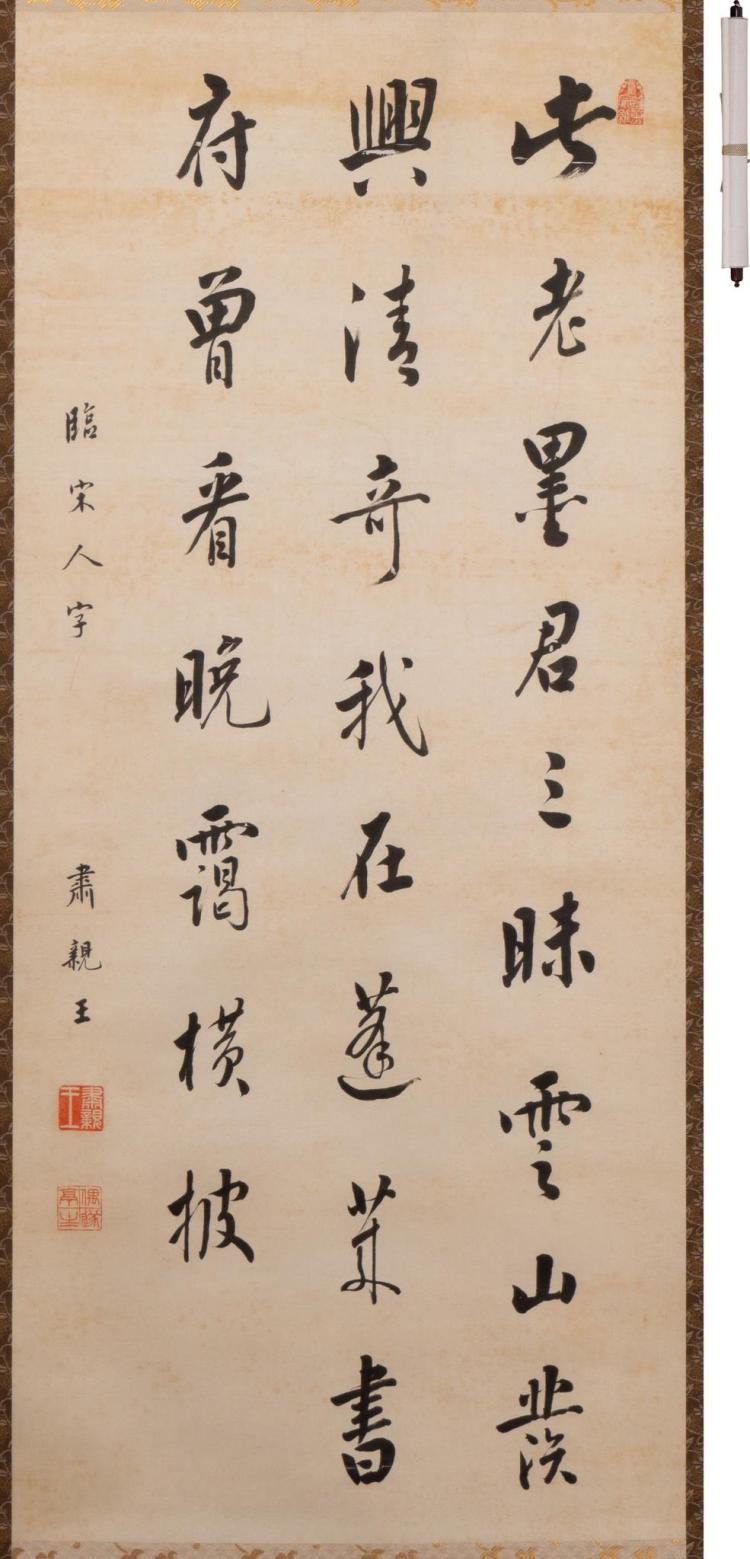 此老墨君三昧雲山發
興清奇我在蓬萊書
府曾看晚靄橫披
臨宋人字
肅親王
肅親王